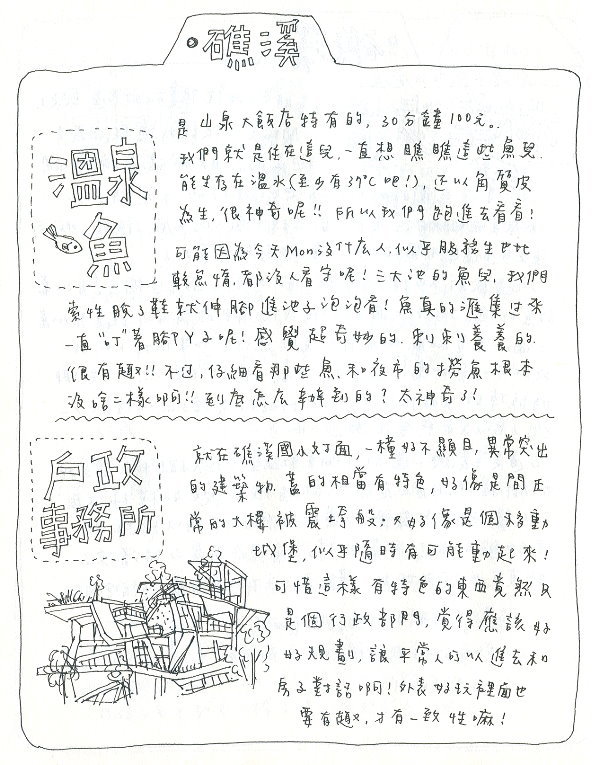 礁溪
溫泉
魚
是山泉大飯店特有的, 30分鐘100元。
我們就是住在這兒, 一直想瞧瞧這些魚兒,
能生存在溫水(至少有39°C吧!), 還以角質皮
為生, 很神奇呢!! 所以我們跑進去看看!
可能因為今天Mon沒什么人, 似乎服務生也比
較怠惰, 都沒人看守呢! 三大池的魚兒, 我們
索性脫了鞋就伸腳進池子泡泡看! 魚真的滙集过來
一直"叮"著腳ㄚ子呢! 感覺超奇妙的, 刺刺養養的
很有趣!! 不过, 仔細看那些魚, 和夜市的撈魚根本
沒啥二樣啊!! 到底怎么辦到的? 太神奇了!
戶政
事務所
就在礁溪國小対面, 一樓好不顯目, 異常突出
的建築物. 蓋的相當有特色, 好像是間正
常的大樓被震垮般; 又好像是個移動
城堡, 似乎隨時有可能動起來!
可惜這樣有特色的東西竟然只
是個行政部門, 覺得應該好
好規劃, 讓平常人可以進去和
房子對話啊! 外表好玩裡面也
要有趣, 才有一致性嘛!